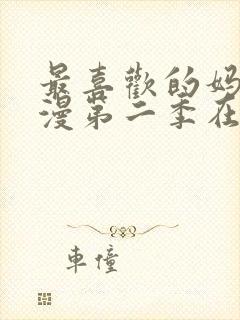 最喜歡的妈
漫第二季在
車憧